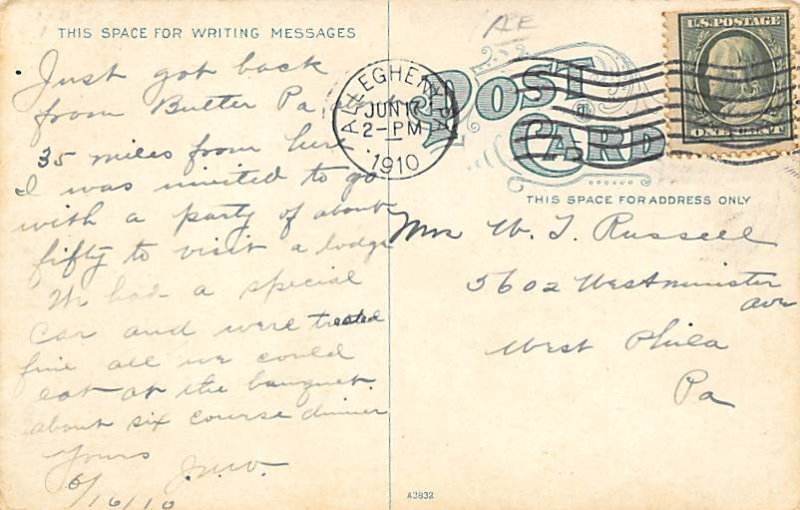 THIS SPACE FOR WRITING MESSAGES
Just got back
from Butler Pa about
35 miles from here
I was invited to go
with a party of about
fifty to visit a lodge
We had a special
car and were treated
fine all we could
eat at the banquet.
about six course dinner
Yours
J.W.W.
6/16/10
ALLEGHENY, PA
JUN 17
2-PM
1910
POST
CARD
U.S. POSTAGE
ONE CENT
THIS SPACE FOR ADDRESS ONLY
Mrs W. J. Russell
5602 Westminister
ave
West Phila
Pa
A2832